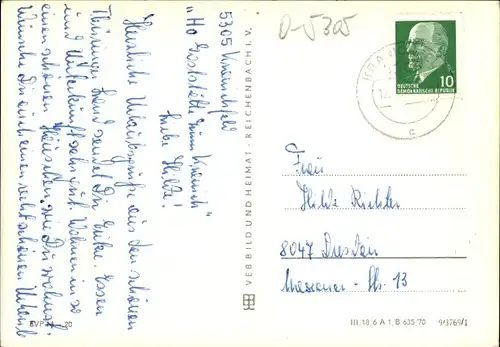 5305 Kranichfeld
"Ho Gaststätte zum Kranich"
Liebe Hilde!
Herzliche Urlaubsgrüße aus dem schönen
Thüringer Land sendet Dir Erika. Essen
und Unterkunft sehr gut. Wohnen in so
einem schönen Häuschen, wie Du wohnst.
Wünsche Dir auch einen recht schönen Urlaub
EVP 20
VEB BILD UND HEIMAT · REICHENBACH I. V.
D-5305
10
DEUTSCHE
DEMOKRATISCHE REPUBLIK
c
Frau
Hilde Richter
8047 Dresden
Str. 13
III/18/6 A 1, B 635/70 9/3769/1